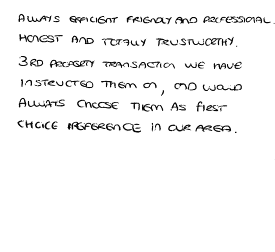 ALWAYS EFFICIENT FRIENDLY AND PROFESSIONAL.
HONEST AND TOTALLY TRUSTWORTHY.
3RD PROPERTY TRANSACTION WE HAVE
INSTRUCTED THEM ON, AND WOULD
ALWAYS CHOOSE THEM AS FIRST
CHOICE PREFERENCE IN OUR AREA.